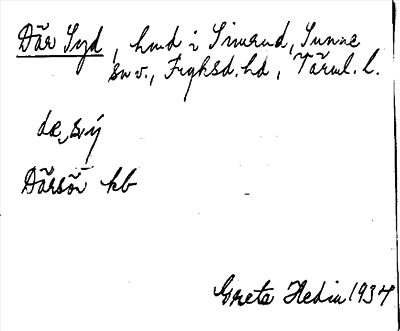 Där Syd, hmd i Simrud, Sunne
sn v., Fryksd. hd, Värml. l.
dæ sý
Därsöi kb
Greta Hedin 1934